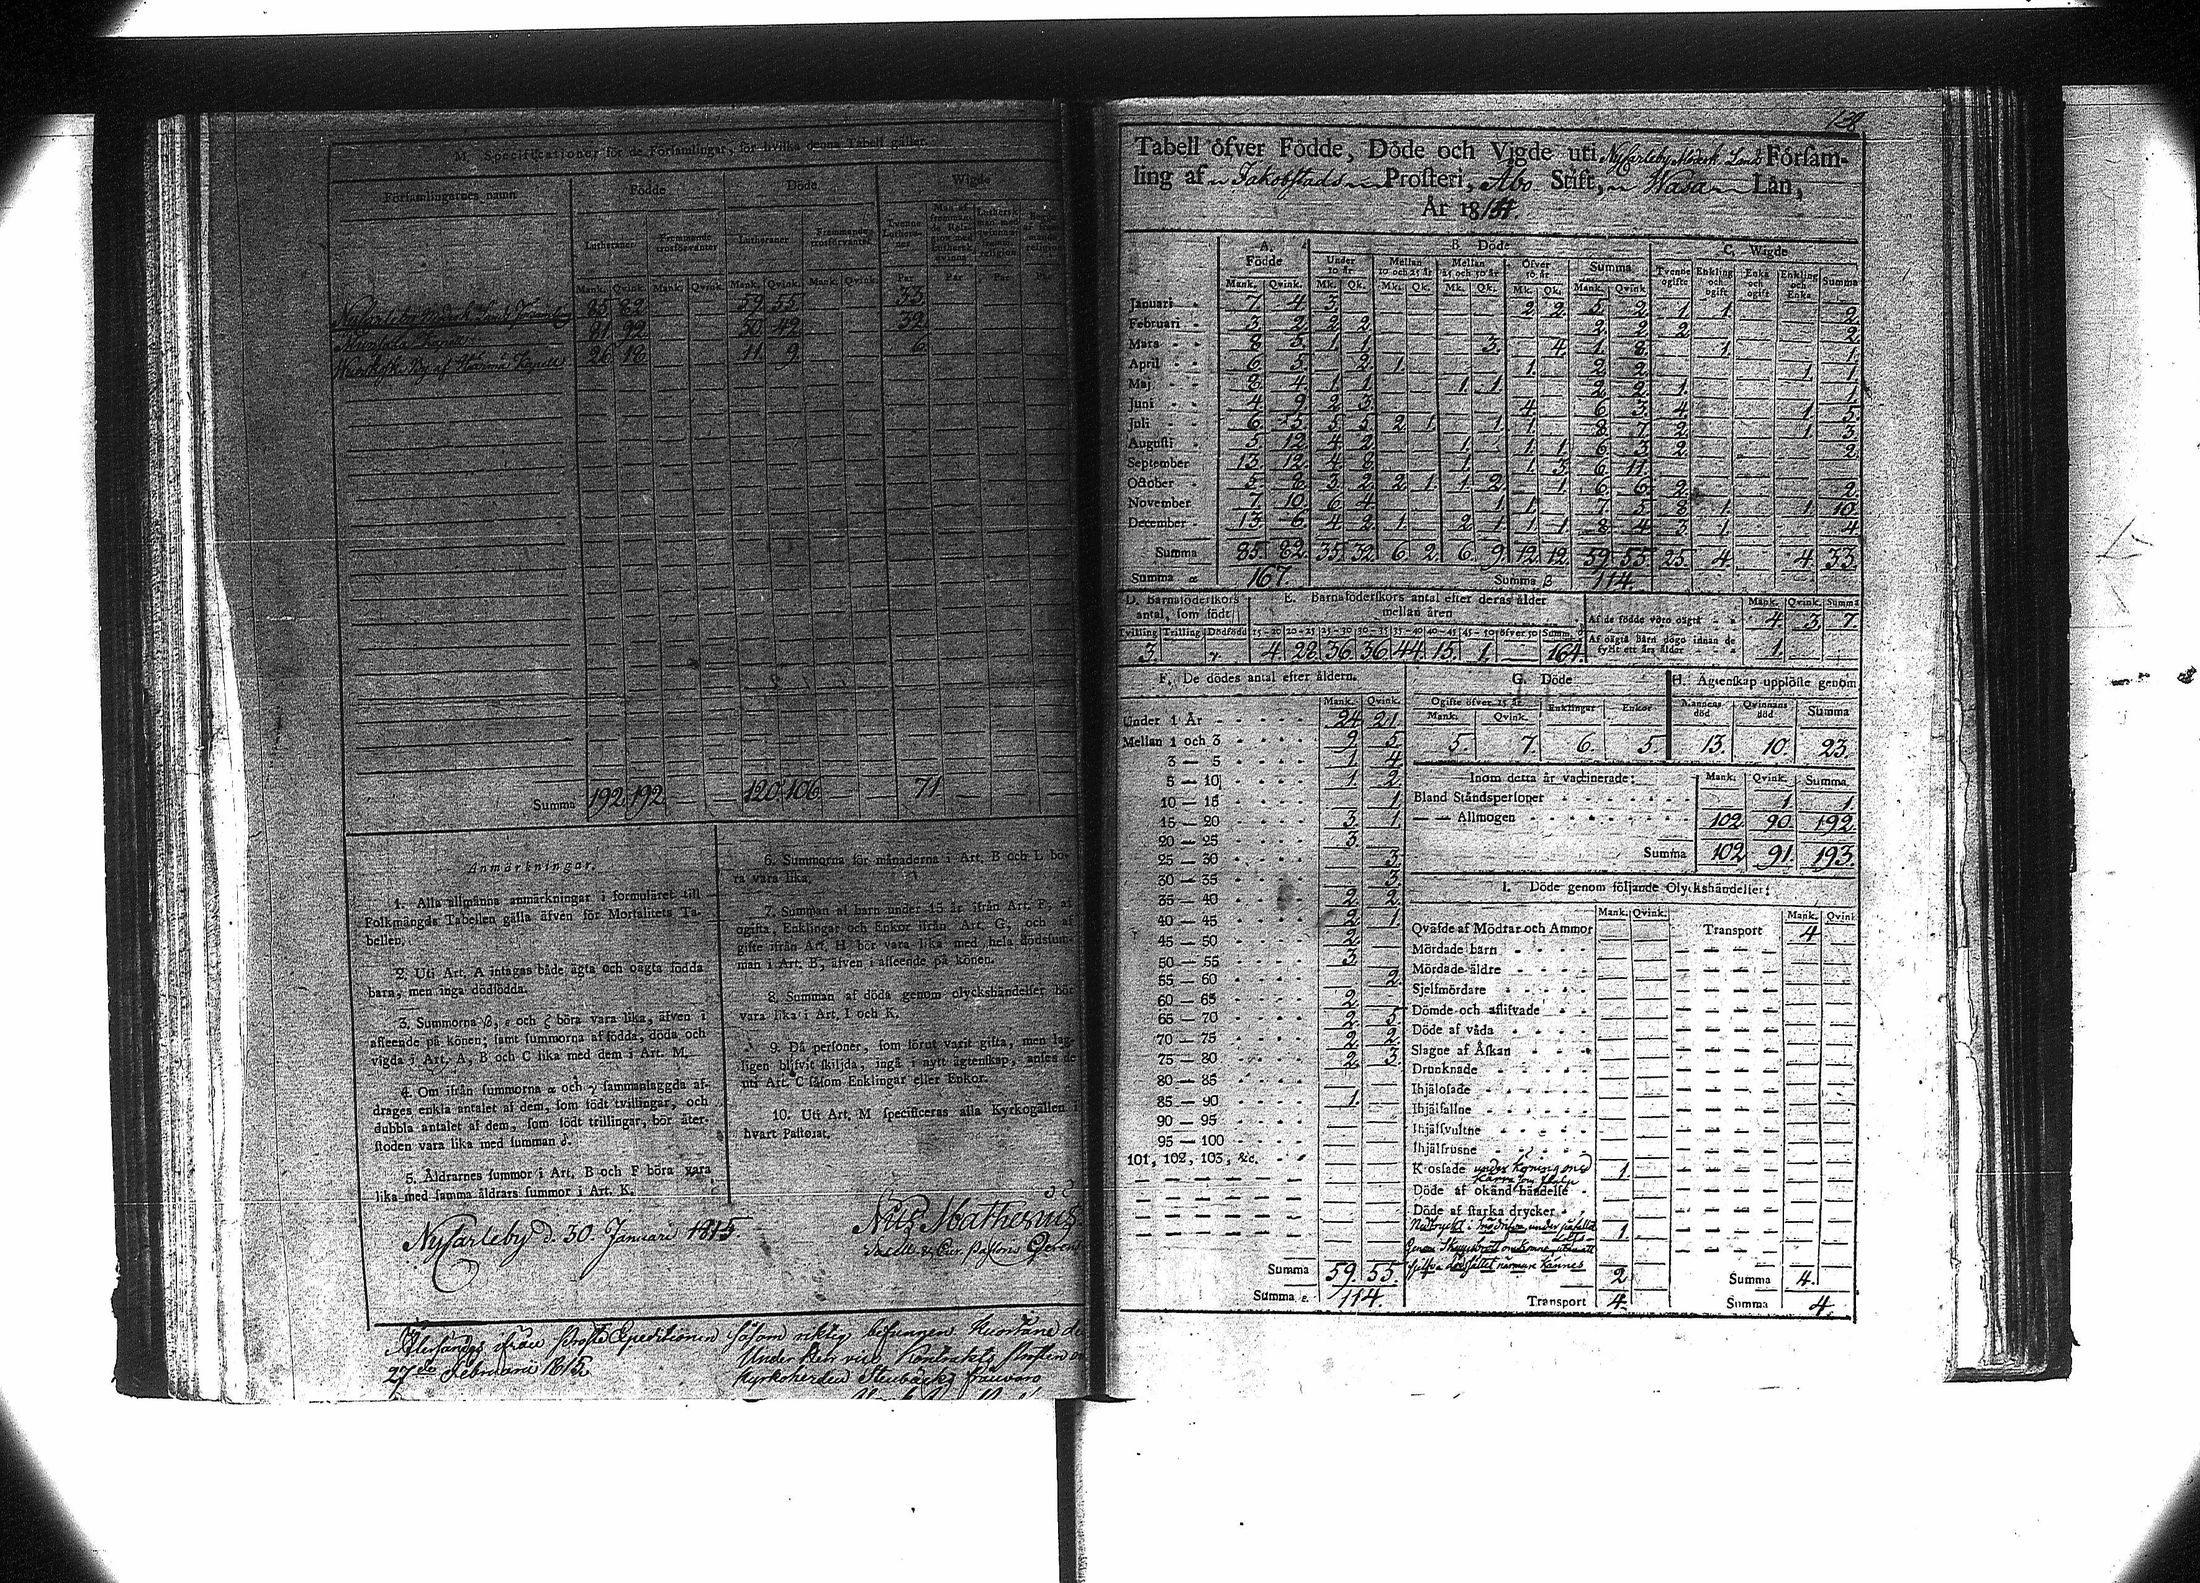 M. Specificationer för de Församlingar, för hvilka denna Tabell gäller.
Församlingarnes namn Födde Döde Wigde
Lutheraner Främmande trosförvanter Lutheraner Främmande trosförvanter Tvenne Lutheraner
Mank. Qvink. Mank. Qvink. Mank. Qvink. Mank. Qvink. Par Par Par
Nykarleby Moderk. Lands Församling 85 82 59 55 33
Munsala 81 92 50 42 32
By af Kapell 26 18 11 9 6
Summa 192 192 120 106 71
Anmärkningar.
1. Alla allmänna anmärkningar i formuläret till
Folkmängds Tabellen gälla äfven för Mortalitets Ta-
bellen.
2. Uti Art. A intagas både ägta och oägta födda
barn, men inga dödfödda.
3. Summorna β, ε och ζ böra vara lika, äfven i
afseende på könen; samt summorna af födda, döda och
vigda i Art. A, B och C lika med dem i Art. M.
4. Om ifrån summorna α och γ sammanlaggda af-
drages enkla antalet af dem, som födt tvillingar, och
dubbla antalet af dem, som födt trillingar, bör åter-
stoden vara lika med summan δ.
5. Åldrarnes summor i Art. B och F böra vara
lika med samma åldrars summor i Art. K.
6. Summorna för månaderna i Art. B och L bö-
ra vara lika.
7. Summan af barn under 15 år ifrån Art. F, af
ogifta, Enklingar och Enkor ifrån Art. G, och af
gifte ifrån Art. H bör vara lika med hela dödssum-
man i Art. B, äfven i afseende på könen.
8. Summan af döda genom olyckshändelser bör
vara lika i Art. I och K.
9. Då personer, som förut varit gifta, men lag-
ligen blifvit skiljda, ingå i nytt ägtenskap, anses de
uti Art. C såsom Enklingar eller Enkor.
10. Uti Art. M specificeras alla Kyrkogällen i
hvart Pastorat.
Nycarleby d. 30 Januari 1815.
Nils Mathesius
Aflersändes ifrån Prosts Expeditionen såsom riktig befunnen Kuortane d.
27de Februarii 1815.
Under Herr vice Kontrakts Prosten
Kyrkoherden Stenbäcks frånvaro
139
Tabell öfver Födde, Döde och Vigde uti Nykarleby Moderk. Lands Församling
af Jakobstads Prosteri, Åbo Stift, Wasa Län,
År 1814.
A. Födde B. Döde C. Wigde
Under 10 år Mellan 10 och 25 år Mellan 25 och 50 år Öfver 50 år Summa Tvenne ogifte Enkling och ogift Enka och ogift Enkling och Enka Summa
Mank. Qvink. Mk. Qk. Mk. Qk. Mk. Qk. Mk. Qk. Mank. Qvink
Januari 7 4 3 2 2 5 2 1 1 2
Februari 3 2 2 2 2 2 2 2
Mars 8 3 1 1 3 4 1 8 1 1
April 6 5 2 1 1 2 2 1 1
Maj 8 4 1 1 1 1 2 2 1 1
Juni 4 9 2 3 4 6 3 4 1 5
Juli 6 5 5 5 2 1 1 1 8 7 2 1 3
Augusti 5 12 4 2 1 1 1 6 3 2 2
September 13 12 4 8 1 1 3 6 11
October 5 8 3 2 2 1 1 2 1 6 6 2 2
November 7 10 6 4 1 1 7 5 8 1 1 10
December 13 6 4 2 1 2 1 1 1 8 4 3 1 4
Summa 85 82 35 32 6 2 6 9 12 12 59 55 25 4 4 33
Summa α 167. Summa β 114.
D. Barnaföderskors antal, som födt
Tvilling Trilling Dödfödde
3.
E. Barnaföderskors antal efter deras ålder mellan åren
15-20 20-25 25-30 30-35 35-40 40-45 45-50 öfver 50 Summ. δ
4 28 36 36 44 15 1 164
Mank. Qvink. Summa
Af de födde voro oägta 4 3 7
Af oägta barn dogo innan de fyllt ett års ålder 1
F. De dödes antal efter åldern.
Mank. Qvink.
Under 1 År 24 21
Mellan 1 och 3 9 5
3 — 5 1 4
5 — 10 1 2
10 — 15 1
15 — 20 3 1
20 — 25 3
25 — 30 3
30 — 35 3
35 — 40 2 2
40 — 45 2 1
45 — 50 2
50 — 55 3
55 — 60 2
60 — 65 2
65 — 70 2 5
70 — 75 2 2
75 — 80 2 3
80 — 85
85 — 90 1
90 — 95
95 — 100
101, 102, 103, &c.
Summa 59 55
Summa ε. 114.
G. Döde
Ogifte öfver 15 år Enklingar Enkor
Mank. Qvink.
5. 7. 6. 5.
H. Ägtenskap upplöste genom
Mannens död Qvinnans död Summa
13. 10. 23.
Inom detta år vaccinerade: Mank. Qvink. Summa
Bland Ståndspersoner 1 1
— — Allmogen 102 90 192
Summa 102 91 193
I. Döde genom följande Olyckshändelser:
Mank. Qvink. Mank. Qvink
Qväfde af Mödrar och Ammor Transport 4
Mördade barn
Mördade äldre
Sjelfmördare
Dömde och aflifvade
Döde af våda
Slagne af Åskan
Drunknade
Ihjälosade
Ihjälfallne
Ihjälsvultne
Ihjälfrusne
Krossade under körning med 1
Döde af okänd händelse
Döde af starka drycker
1
2
Summa 4.
Transport 4 Summa 4.